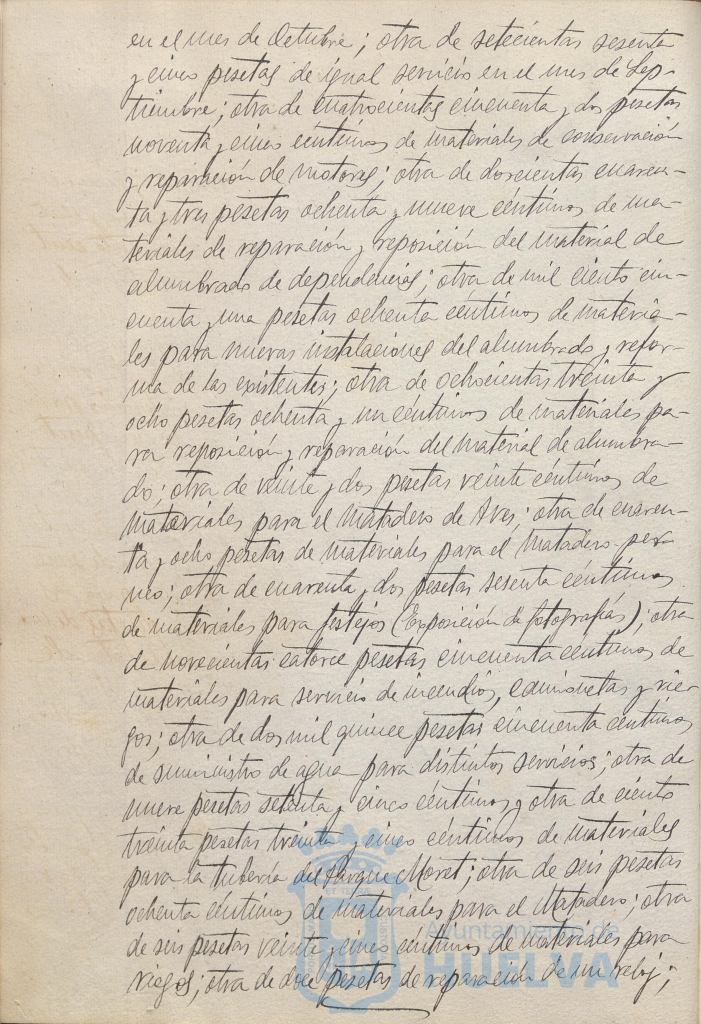 en el mes de Octubre; otra de setecientas sesenta
y cinco pesetas de igual servicio en el mes de Sep-
tiembre; otra de cuatrocientas cincuenta y dos pesetas
noventa y cinco céntimos de materiales de conservación
y reparación de motores; otra de doscientas cuaren-
ta y tres pesetas ochenta y nueve céntimos de ma-
teriales de reparación y reposición del material de
alumbrado de dependencias; otra de mil ciento cin-
cuenta y una pesetas ochenta céntimos de materia-
les para nuevas instalaciones del alumbrado y refor-
ma de las existentes; otra de ochocientas treinta y
ocho pesetas ochenta y un céntimos de materiales pa-
ra reposición y reparación del material de alumbra-
do; otra de veinte y dos pesetas veinte céntimos de
materiales para el Matadero de Aves; otra de cuaren-
ta y ocho pesetas de materiales para el Matadero
mo; otra de cuarenta y dos pesetas sesenta céntimos
de materiales para festejos (Exposición de fotografías); otra
de novecientas catorce pesetas cincuenta céntimos de
materiales para servicio de incendios, camionetas y rie-
gos; otra de dos mil quince pesetas cincuenta céntimos
de suministro de agua para distintos servicios; otra de
nueve pesetas setenta y cinco céntimos y otra de ciento
treinta pesetas treinta y cinco céntimos de materiales
para la tubería del Parque Moret; otra de seis pesetas
ochenta céntimos de materiales para el Matadero; otra
de seis pesetas veinte y cinco céntimos de materiales para
riegos; otra de doce pesetas de reparación de un reloj;
Ayuntamiento de
HUELVA